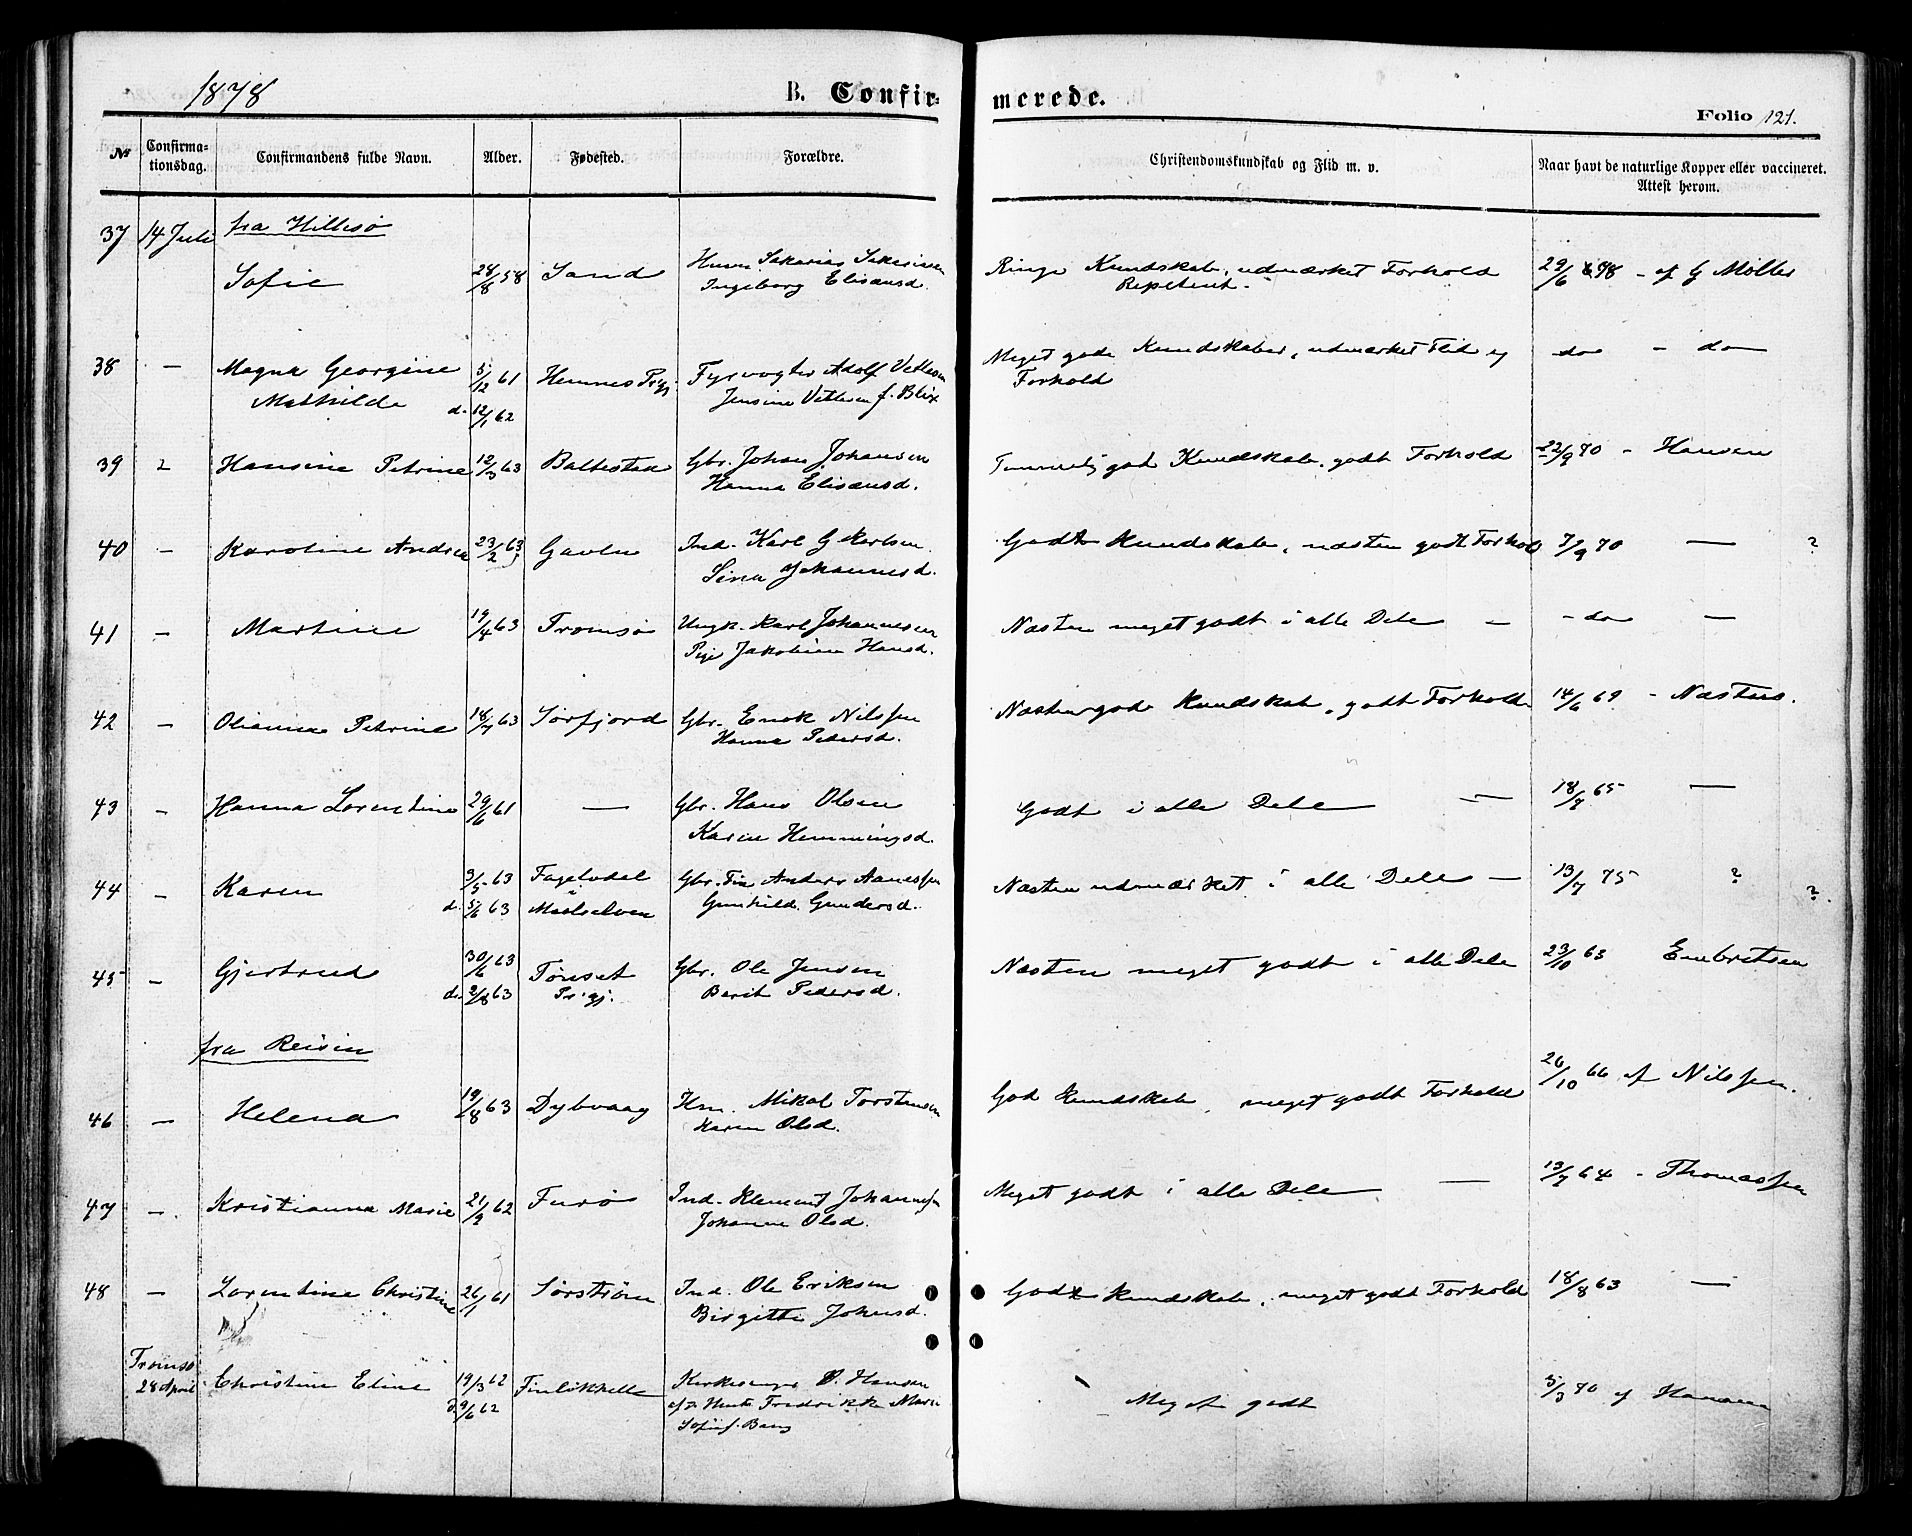 1878
B. Confir-
merede.
Folio 121.
№
Confirma-
tionsdag.
Confirmandens fulde Navn.
Alder.
Fødested.
Forældre.
Christendomskundskab og Flid m. v.
Naar havt de naturlige Kopper eller vaccineret.
Attest herom.
fra Hillesø
37 14 Juli Sofie 28/8 58 Sand
Ingeborg Elisæusd.
Ringe Kundskab, udmærket Forhold
Repetent.
29/6 78 - af G Møller
38 — Magna Georgine 5/12 61 Hemnes Prgj. Fyrvogter Adolf Vetlesen
Mathilde d. 12/1 62 Jensine Vetlesen f. Blix
Meget gode Kundskaber, udmærket Flid og
Forhold
do - do
39 Hansine Petrine 12/3 63 Baltestad Gbr. Johan Johansen
Hanna Elisæusd.
Temmelig god Kundskab, godt Forhold 22/9 70 - Hansen
40 — Karoline Andrea 23/2 63 Gavlen Ind. Karl G Karlsen
Sina Johannesd.
Godt Kundskab, næsten godt Forhold 7/9 70 — ?
41 — Martine 19/4 63 Tromsø Ungk. Karl Johannesen
Pige Jakobine Hansd.
Næsten meget godt i alle Dele — - do —
42 — Olianna Petrine 18/7 63 Sørfjord Gbr. Enok Nilssen
Hanna Pedersd.
Næsten gode Kundskab, godt Forhold 14/6 69 -
43 — Hanna Lorentine 29/6 61 — Gbr. Hans Olsen
Karen Hemmingsd.
Godt i alle Dele — 18/7 65 —
44 — Karen 3/5 63 i Gbr. Anders Aanessen
d. 5/6 63 Maalselven Gunhild Gundersd.
Næsten udmærket i alle Dele — 13/7 75 ? ?
45 — Gjertrud 30/6 63 Tønset Gbr. Ole Jensen
d. 2/8 63 Pr.gj. Berit Pedersd.
Næsten meget godt i alle Dele 23/10 63 Embretsen
fra Reisen
46 — Helena 19/8 63 Dybvaag Hm. Mikal Torstensen
Karen Olsd.
God Kundskab, meget godt Forhold 26/10 66 af Nilssen.
47 — Kristianna Marie 21/9 62 Furø Ind. Klement Johannessen
Johanne Olsd.
Meget godt i alle Dele — 13/7 64 - Thomassen
48 — Lorentine Christine 26/1 61 Sørstrøm Ind. Ole Eriksen
Birgitte Johnsd.
Godt Kundskab, meget godt Forhold 18/8 63 —
Tromsø
28 April Christine Eline 19/3 62 Kirkesanger O. Hansen
d. 9/6 62 Fredrikke Marie
Sofie f. Bang
Meget godt
5/3 70 af Hansen